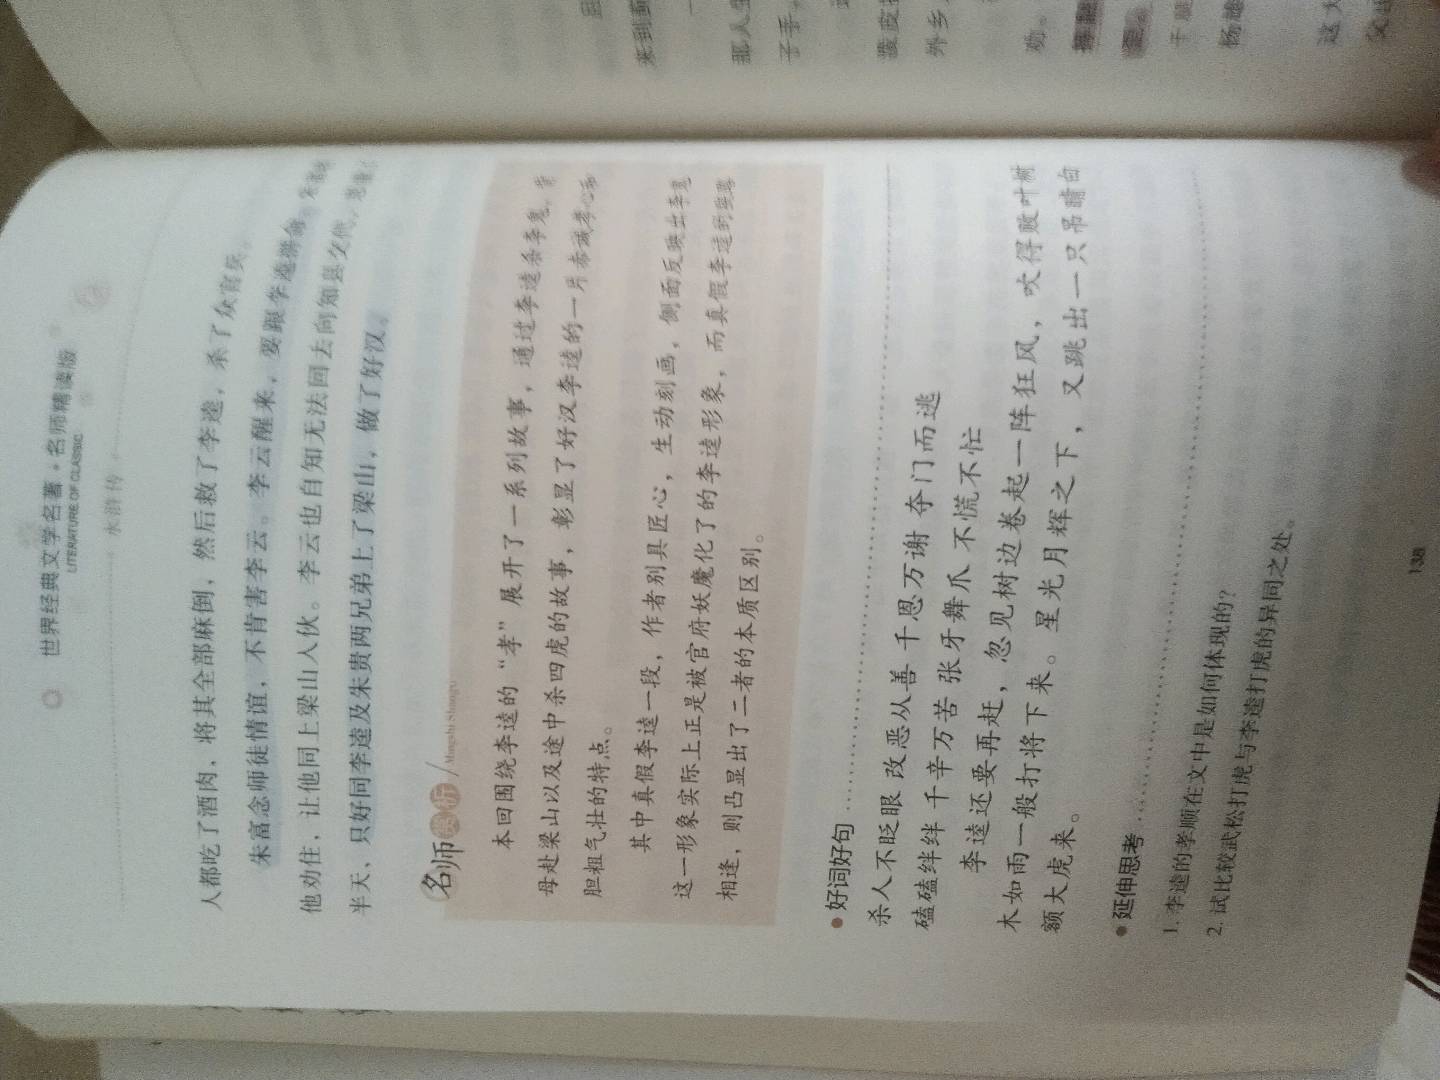 世界经典文学名著·名师精读版
LITERATURE OF CLASSIC
水浒传
人都吃了酒肉，将其全部麻倒，然后救了李逵，杀了众官兵。
朱富念师徒情谊，不肯害李云。李云醒来，要跟李逵拼命，朱富
他劝住，让他同上梁山入伙。李云也自知无法回去向知县交代，
半天，只好同李逵及朱贵两兄弟上了梁山，做了好汉。
名师赏析/Mingshi Shangxi
本回围绕李逵的“孝”展开了一系列故事，通过李逵杀李鬼、背
母赴梁山以及途中杀四虎的故事，彰显了好汉李逵的一片赤诚孝心和
胆粗气壮的特点。
其中真假李逵一段，作者别具匠心，生动刻画，侧面反映出李逵
这一形象实际上正是被官府妖魔化了的李逵形象，而真假李逵的狭路
相逢，则凸显出了二者的本质区别。
●好词好句
杀人不眨眼 改恶从善 千恩万谢 夺门而逃
磕磕绊绊 千辛万苦 张牙舞爪 不慌不忙
李逵还要再赶，忽见树边卷起一阵狂风，吹得败叶树
木如雨一般打将下来。星光月辉之下，又跳出一只吊睛白
额大虎来。
●延伸思考
1. 李逵的孝顺在文中是如何体现的？
2. 试比较武松打虎与李逵打虎的异同之处。
138
来到蓟
那人生
子手。
外乡
劝。
杨雄
这大
父